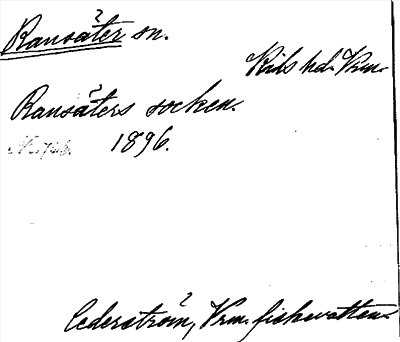 Ransäter sn.
Kils hd. Vrm.
Ransäters socken.
1896.
Cederström, Vrm. fiskvatten.